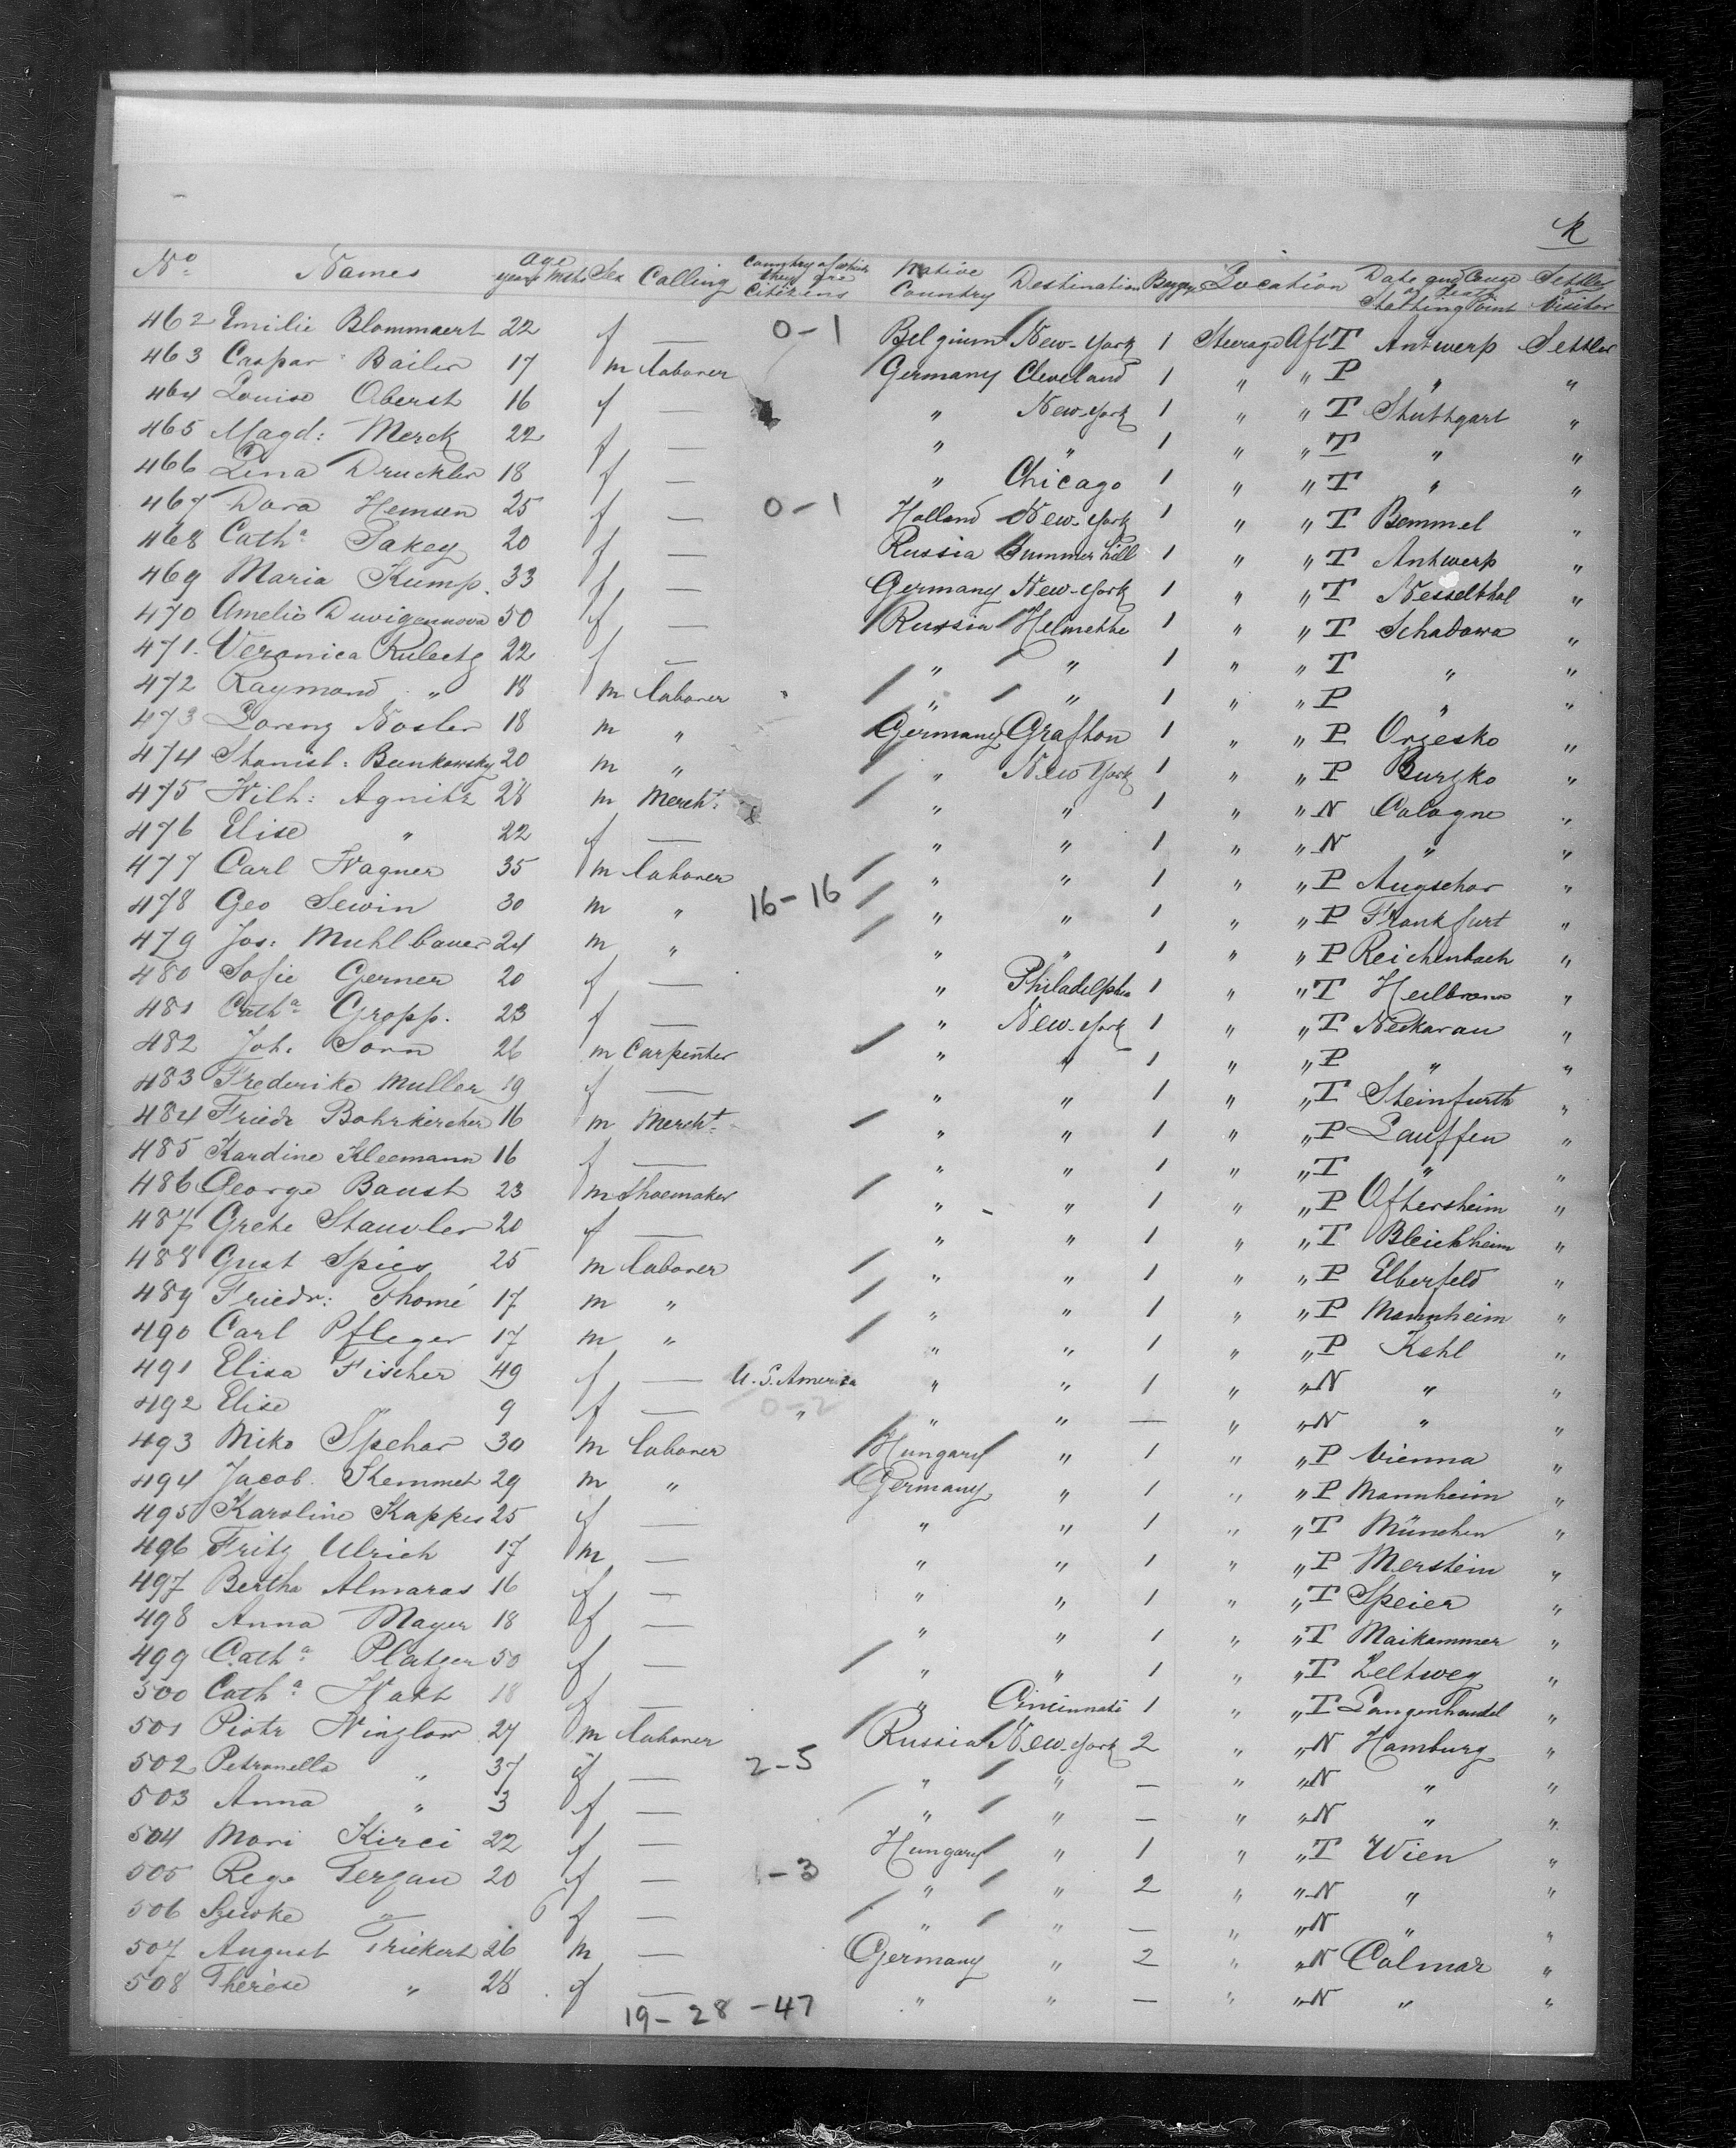 k
No Names Age years Mths Sex Calling Country of which they are Citizens Native Country Destination Location Date and Cause of Death Starting Point Settler or Visitor
462 Emilie Blommaert 22 f — 0-1 Belgium New-York 1 Steerage Aft T Antwerp Settler
463 Caspar Bailer 17 m laborer Germany Cleveland 1 " " P " "
464 Louise Oberst 16 f — " New-York 1 " " T Stuttgart "
465 Magd: Merck 22 f — " " 1 " " T " "
466 Lina Druckler 18 f — " Chicago 1 " " T " "
467 Dora Hemsen 25 f — 0-1 Holland New-York 1 " " T Bemmel "
468 Catha Sakey 20 f — Russia Summer hill 1 " " T Antwerp "
469 Maria Kump. 33 f — Germany New-York 1 " " T Nesselthal "
470 Amelie 50 f — Russia Helmetta 1 " " T Schadowa "
471. Veronica 22 f — " " 1 " " T " "
472 Raymond " 18 m laborer " " 1 " " P " "
473 Lorenz Nosler 18 m " Germany Grafton 1 " " P Orzesko "
474 Stanisl: Bunkowsky 20 m " " New York 1 " " P "
475 Wilh: Agnitz 28 m Mercht. " " 1 " " N Cologne "
476 Elise " 22 f — " " 1 " " N " "
477 Carl Wagner 35 m laborer " " 1 " " P "
478 Geo Sewin 30 m " 16-16 " " 1 " " P Frankfurt "
479 Jos: Muhlbauer 24 m " " " 1 " " P Reichenbach "
480 Sofie Gerner 20 f — " Philadelphia 1 " " T Heilbronn "
481 Catha Gropp. 23 f — " New-York 1 " " T Neckarau "
482 Joh. Sorn 26 m Carpenter " " 1 " " P " "
483 Frederike Muller 19 f — " " 1 " " T Steinfurth "
484 Friedr Bohrkircher 16 m Mercht. " " 1 " " P Lauffen "
485 Kardine Kleemann 16 f — " " 1 " " T " "
486 George Baust 23 m Shoemaker " " 1 " " P Oftersheim "
487 Grete Stauvler 20 f — " " 1 " " T Bleichheim "
488 Gust Spies 25 m laborer " " 1 " " P Elberfeld "
489 Friedr: Thomé 17 m " " " 1 " " P Mannheim "
490 Carl Pfleger 17 m " " " 1 " " P Kehl "
491 Elisa Fischer 49 f — U.S. America " " 1 " " N " "
492 Elise " 9 f — " 0-2 " " — " " N " "
493 Miko Spehar 30 m laborer Hungary " 1 " " P Vienna "
494 Jacob Stemmet 29 m " Germany " 1 " " P Mannheim "
495 Karoline Kappes 25 f — " " 1 " " T München "
496 Fritz Ulrich 17 m — " " 1 " " P Merstein "
497 Bertha Almaras 16 f — " " 1 " " T Speier "
498 Anna Mayer 18 f — " " 1 " " T Maikammer "
499 Catha Platzer 50 f — " " 1 " " T Zeltweg "
500 Catha 18 f — " Cincinnati 1 " " T "
501 Piotr Winzlow 27 m laborer Russia New-York 2 " " N Hamburg "
502 Petronella " 37 f — 2-5 " " — " " N " "
503 Anna " 3 f — " " — " " N " "
504 Mari Kirci 22 f — Hungary " 1 " " T Wien "
505 Rege Terzan 20 f — 1-3 " " 2 " " N " "
506 " 6 f — " " — " " N " "
507 August Triekert 26 m — Germany " 2 " " N Colmar "
508 Therèse " 28 f — " " — " " N " "
19-28-47